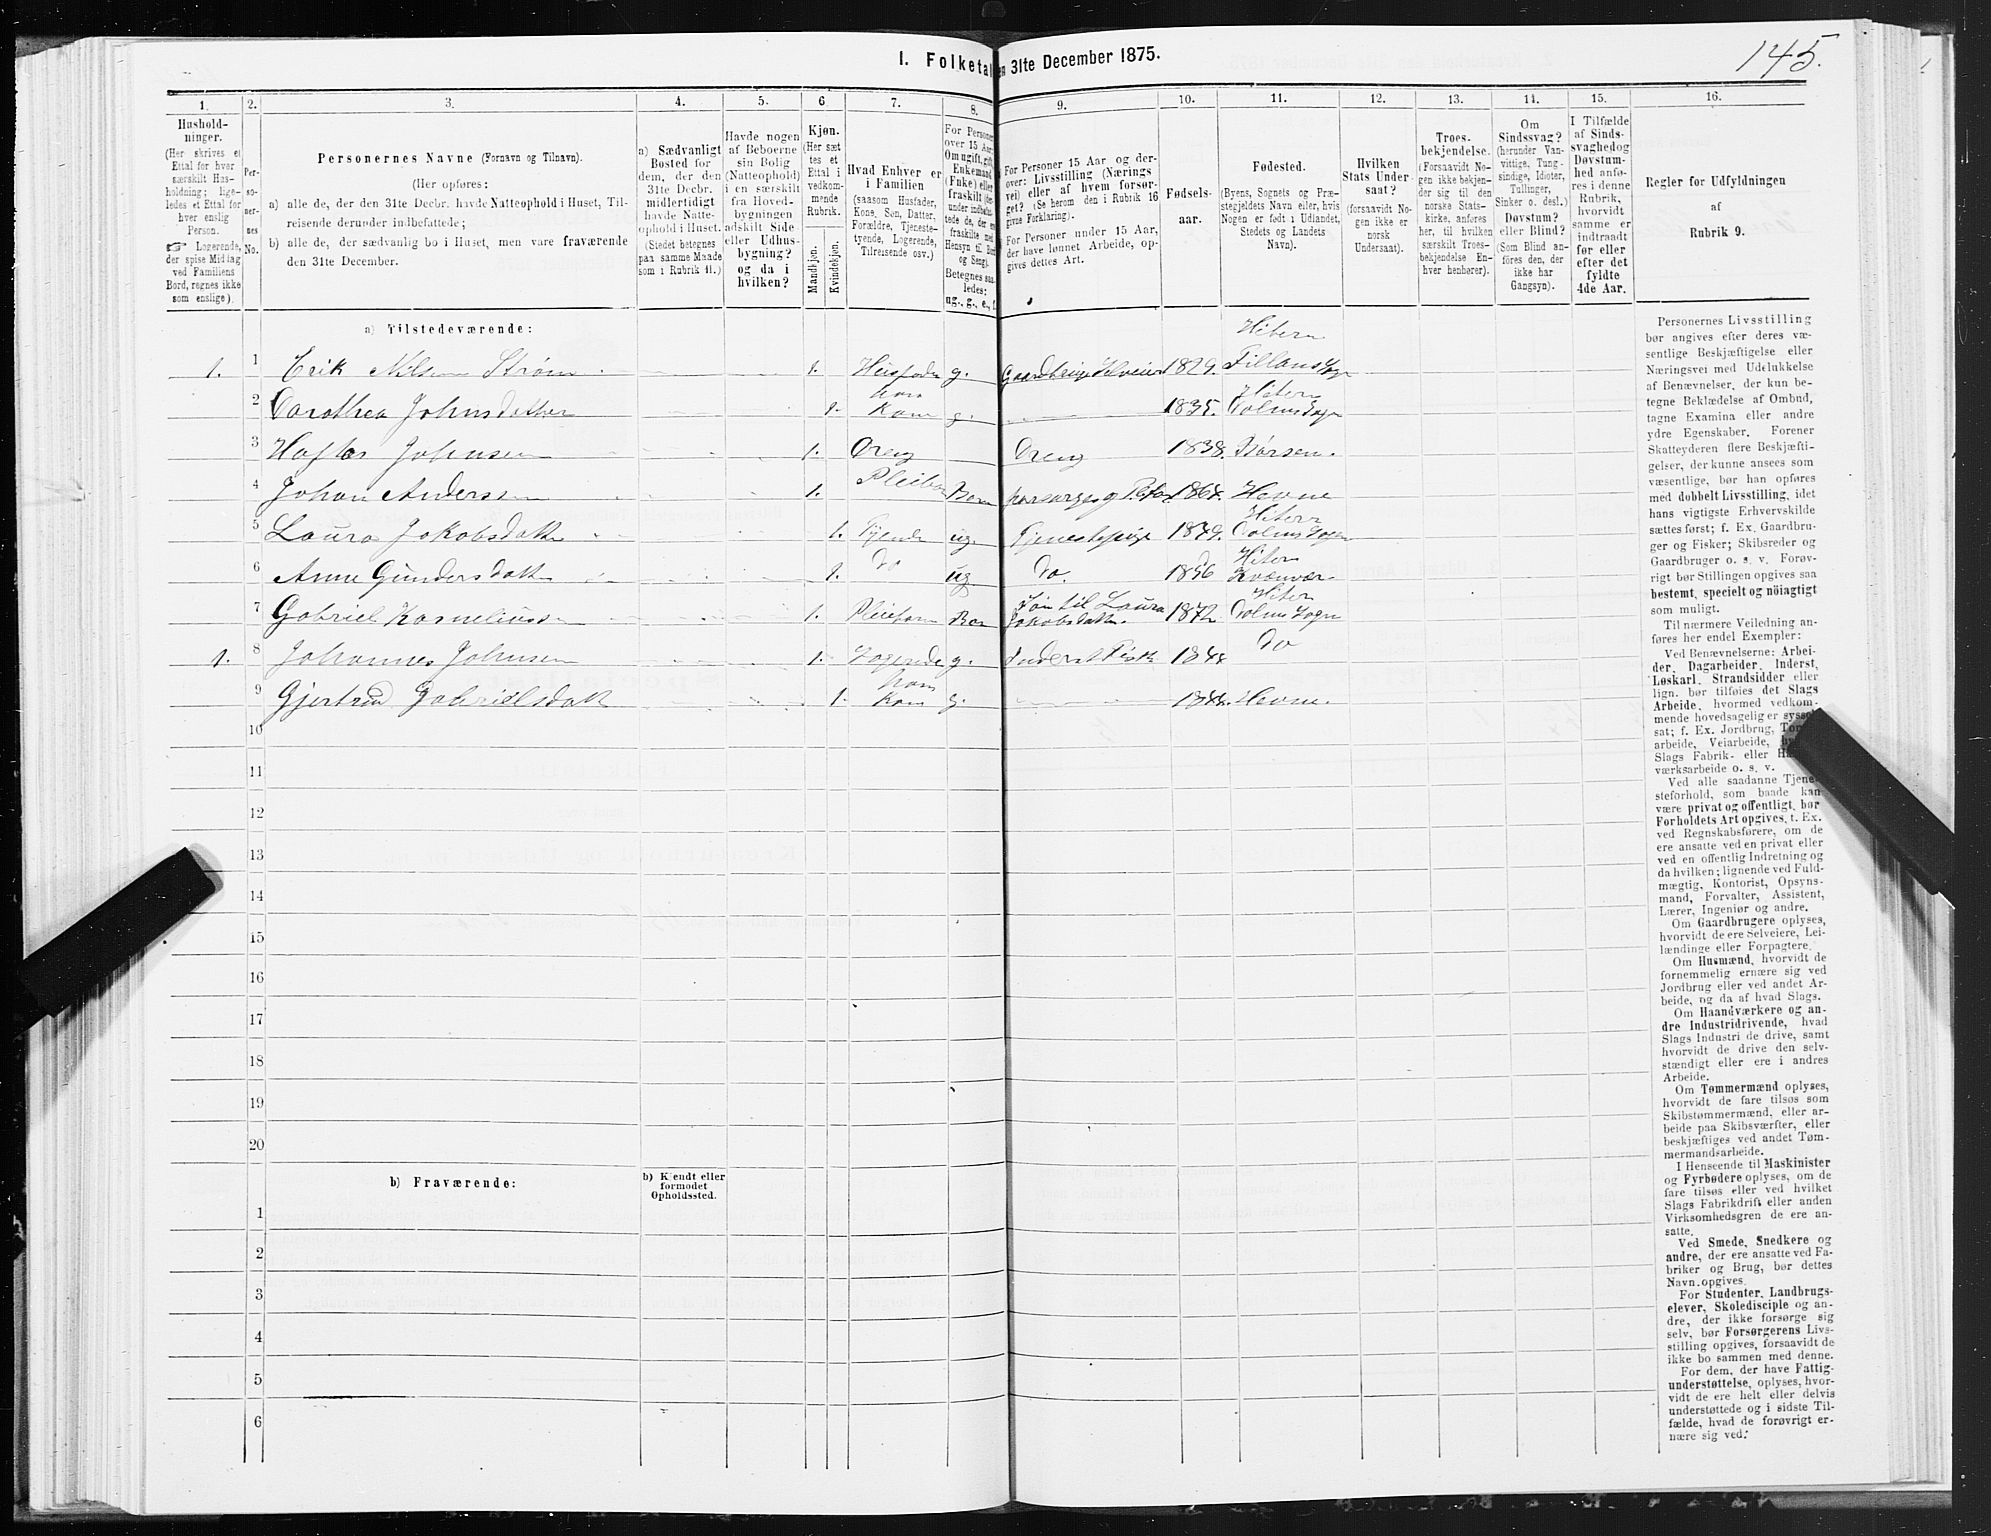 145.
I. Folketal
en 31te December 1875.
1. 2. 3. 4. 5. 6. 7. 8. 9. 10. 11. 12. 13. 14. 15. 16.
Hushold-
ninger.
(Her skrives et
Ettal for hver
særskilt Hus-
holdning; lige-
ledes et Ettal for
hver enslig
Person.
☞ Logerende,
der spise Middag
ved Familiens
Bord, regnes ikke
som enslige).
Per-
so-
ner-
nes
No.
Personernes Navne (Fornavn og Tilnavn).
(Her opføres:
a) alle de, der den 31te Decbr. havde Natteophold i Huset, Til-
reisende derunder indbefattede;
b) alle de, der sædvanlig bo i Huset, men vare fraværende
den 31te December.
a) Sædvanligt
Bosted for
dem, der den
31te Decbr.
midlertidigt
havde Natte-
ophold i Huset.
(Stedet betegnes
paa samme Maade
som i Rubrik 11.)
Havde nogen
af Beboerne
sin Bolig
(Natteophold)
i en særskilt
fra Hoved-
bygningen
adskilt Side-
eller Udhus-
bygning?
og da i
hvilken?
Kjøn.
(Her sæt
tes et
Ettal i
vedkom-
mende
Rubrik.
Mandkjøn.
Kvindekjøn.
Hvad Enhver er
i Familien
(saasom Husfader,
Kone, Søn, Datter,
Forældre, Tjeneste-
tyende, Logerende,
Tilreisende osv.)
For Personer
over 15 Aar:
Om ugift, gift,
Enkemand
(Enke) eller
fraskilt
Betegnes saa-
ledes:
ug., g., e., f.
For Personer 15 Aar og der-
over: Livsstilling (Nærings
vei) eller af hvem forsør-
get? (Se herom den i Rubrik 16
givne Forklaring).
For Personer under 15 Aar,
der have lønnet Arbeide, op-
gives dettes Art.
Fødsels-
aar.
Fødested.
(Byens, Sognets og Præ-
stegjeldets Navn eller, hvis
Nogen er født i Udlandet,
Stedets og Landets
Navn).
Hvilken
Stats Under-
saat?
(forsaavidt No-
gen ikke er
norsk
Undersaat).
Troes-
bekjendelse.
(Forsaavidt No-
gen ikke bekjen-
der sig til den
norske Stats-
kirke, anføres
her, til hvilken
særskilt Troes-
bekjendelse En-
hver henhører).
Om
Sindssvag?
(herunder Van-
vittige, Tung-
sindige, Idioter,
Tullinger,
Sinker o. desl.)
Døvstum?
eller Blind?
(Som Blind an-
føres den, der
ikke har
Gangsyn).
I Tilfælde
af Sinds-
svaghed og
Døvstum-
hed anfø-
res i denne
Rubrik,
hvorvidt
samme er
indtraadt
før eller
efter det
fyldte
4de Aar.
Regler for Udfyldningen
af
Rubrik 9.
a) Tilstedeværende:
1. 1 Erik Nilsen Strøm 1. Husfader g. Gaardbruger Selveier 1829. Hitern Fillans Sogn
2 Dorothea Johnsdatter 1. hans Kone g. 1835. Hitern Dolms Sogn
3 Johnsen 1. Dreng Dreng 1838. Børsen.
4 Johan Anderssen 1. Pleiebarn Barn forsørges af 1864. Hevne
5 Laura Jakobsdatter 1. Tjende ug. Tjenestepige 1849. Hitern Dolms Sogn
6 Anne Gundersdatter 1. do ug. do. 1856 Hitern Kvænvær
7 Gabriel Korneliussen 1. Pleiebarn Barn Søn til Laura Jakobsdatter. 1872 Hitern Dolms Sogn
1. 8 Johannes Johnsen 1. Logerende g. Inderst Fisk 1844 do
9 Gjertrud Gabrielsdatter 1. hans Kone g. 1844. Hevne.
10
11
12
13
14
15
16
17
18
19
20
b) Fraværende:
b) Kjendt eller
formodet
Opholdssted.
1
2
3
4
5
6
Personernes Livsstilling
bør angives efter deres væ-
sentlige Beskjæftigelse eller
Næringsvei med Udelukkelse
af Benævnelser, der kun be-
tegne Beklædelse af Ombud,
tagne Examina eller andre
ydre Egenskaber. Forener
Skatteyderen flere Beskjæfti-
gelser, der kunne ansees som
væsentlige, bør han opføres
med dobbelt Livsstilling, idet
hans vigtigste Erhvervskilde
sættes først; f. Ex. Gaardbru-
ger og Fisker; Skibsreder og
Gaardbruger o. s. v. Forøv-
rigt bør Stillingen opgives saa
bestemt, specielt og nöiagtigt
som muligt.
Til nærmere Veiledning an-
føres her endel Exempler:
Ved Benævnelserne: Arbei-
der, Dagarbeider, Inderst,
Løskarl, Strandsidder eller
lign. bør tilføies det Slags
Arbeide, hvormed vedkom-
mende hovedsagelig er syssel-
sat; f. Ex. Jordbrug, Tom-
arbeide, Veiarbeide,
Slags Fabrik- eller
værksarbeide o. s. v.
Ved alle saadanne Tjene-
steforhold, som baade kan
være privat og offentligt, bør
Forholdets Art opgives, t. Ex.
ved Regnskabsførere, om de
ere ansatte ved en privat eller
ved en offentlig Indretning og
da hvilken; lignende ved Fuld-
mægtig, Kontorist, Opsyns-
mand, Forvalter, Assistent,
Lærer, Ingeniør og andre.
Om Gaardbrugere oplyses,
hvorvidt de ere Selveiere, Lei-
lændinge eller Forpagtere.
Om Husmænd, hvorvidt de
fornemmelig ernære sig ved
Jordbrug eller ved andet Ar-
beide, og da af hvad Slags.
Om Haandværkere og an-
dre Industridrivende, hvad
Slags Industri de drive, samt
hvorvidt de drive den selv-
stændigt eller ere i andres
Arbeide.
Om Tømmermænd oplyses,
hvorvidt de fare tilsøs som
Skibstømmermænd, eller ar-
beide paa Skibsværfter, eller
beskjæftiges ved andet Tøm-
mermandsarbeide.
I Henseende til Maskinister
og Fyrbødere oplyses, om de
fare tilsøs eller ved hvilket
Slags Fabrikdrift eller anden
Virksomhedsgren de ere an-
satte.
Ved Smede, Snedkere og
andre, der ere ansatte ved Fa-
briker og Brug, bør dettes
Navn opgives.
For Studenter, Landbrugs-
elever, Skoledisciple og an-
dre, der ikke forsørge sig
selv, bør Forsørgerens Livs-
stilling opgives, forsaavidt de
ikke bo sammen med denne.
For dem, der have Fattig-
understøttelse, oplyses, hvor-
vidt de ere helt eller delvis
understøttede og i sidste Til-
fælde, hvad de forøvrigt er-
nære sig ved.